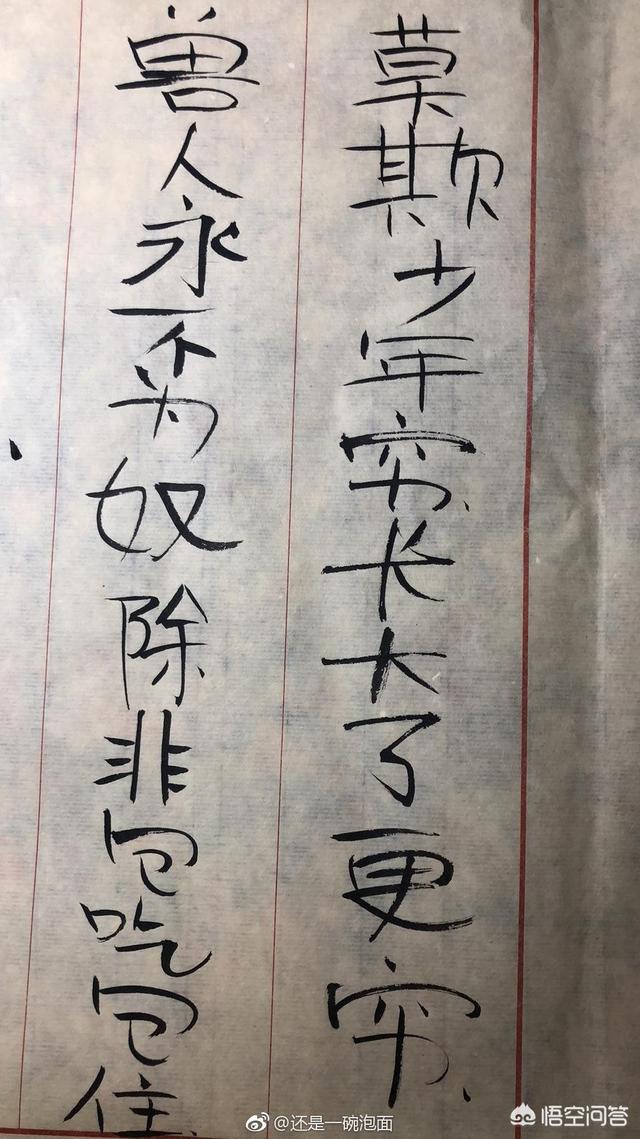 莫欺少年穷长大了更穷
兽人永不为奴除非包吃包住
@还是一碗泡面
悟空问答